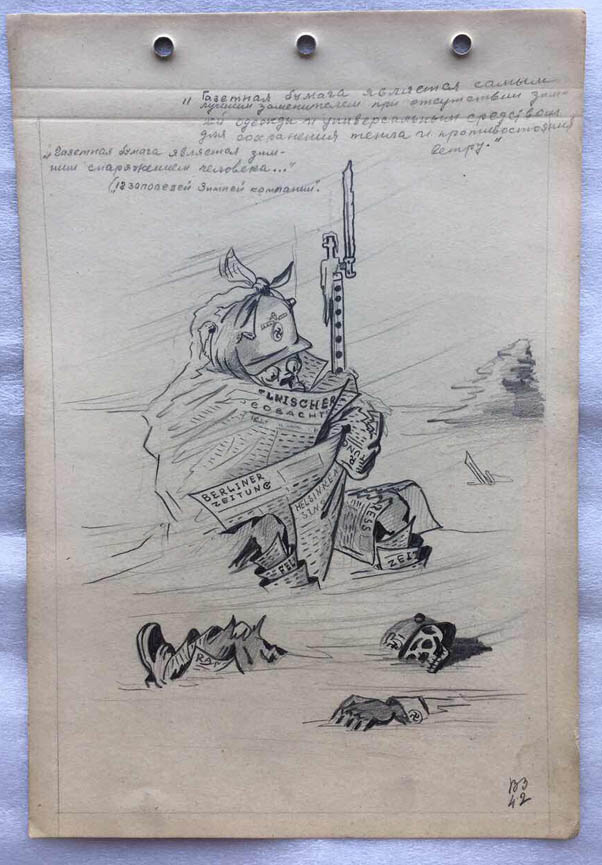 "Газетная бумага является самым
лучшим заменителем при отсутствии зим-
ней одежды и универсальным средством
для сохранения тепла и противостояния
ветру."
"Газетная бумага является зим-
ним снаряжением человека..."
(12 заповедей Зимней компании".
LKISCHER
EOBACHT
BERLINER
ZEITUNG
HELSINKEN
SIN
TUNG
RESS
ZEIT
FEL
RAP
ВЗ
42